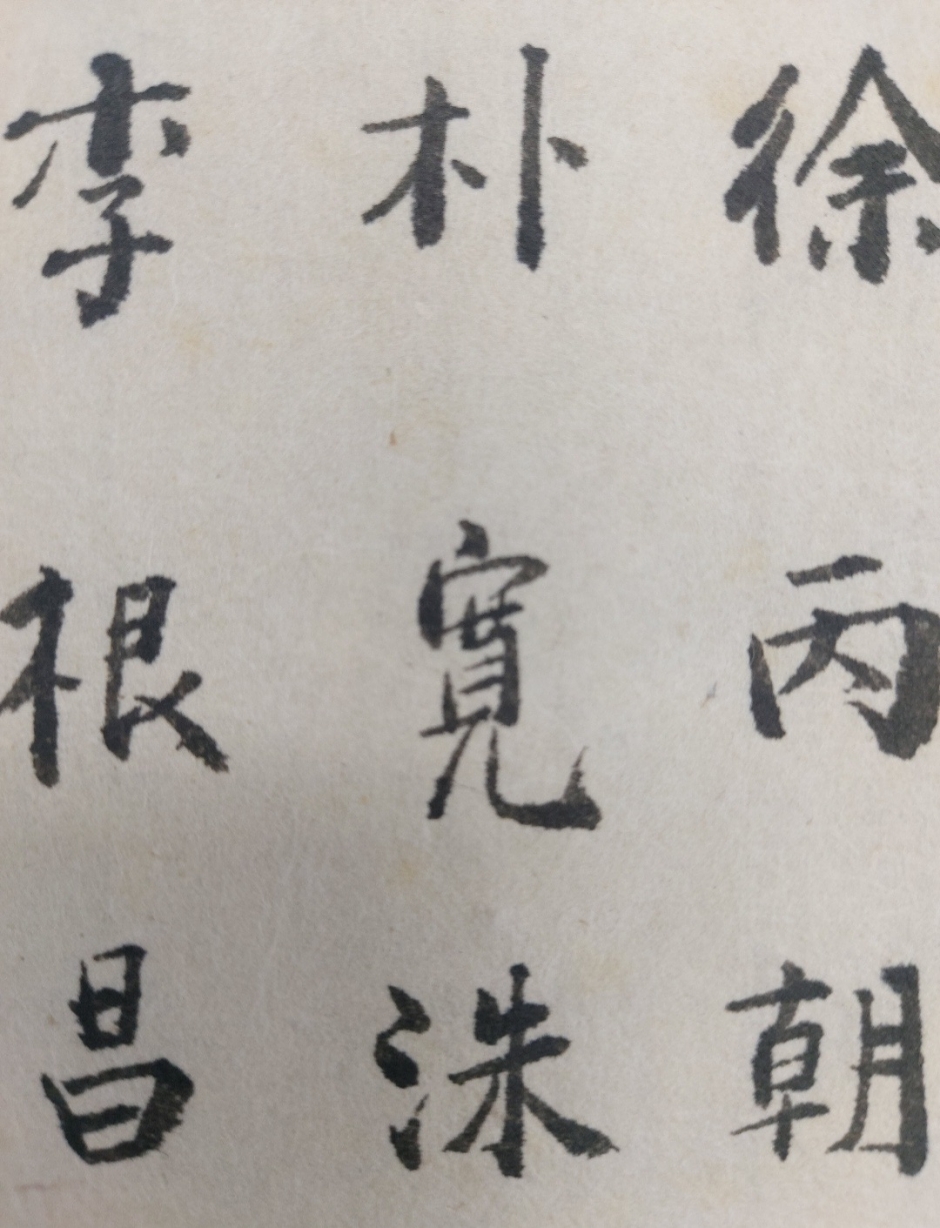 徐丙朝
朴寬洙
李根昌